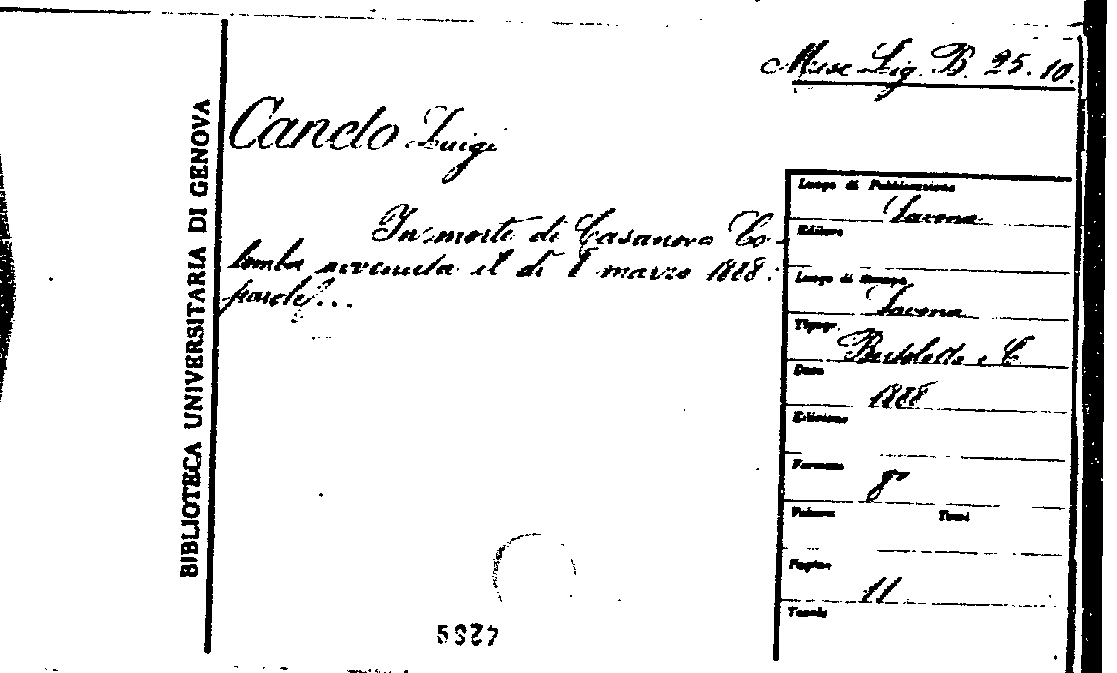 Misc Lig. B. 25. 10.
BIBLIOTECA UNIVERSITARIA DI GENOVA
Canelo Luigi
In morte di Casanova Co-
lomba avvenuta il dì 8 marzo 1888:
parole...
Luogo di Pubblicazione
Savona
Editore
Luogo di Stampa
Savona
Tipogr.
Bertolotto e C
Data
1888
Edizione
Formato
8°
Volume Tomi
Pagine
11
Tavole